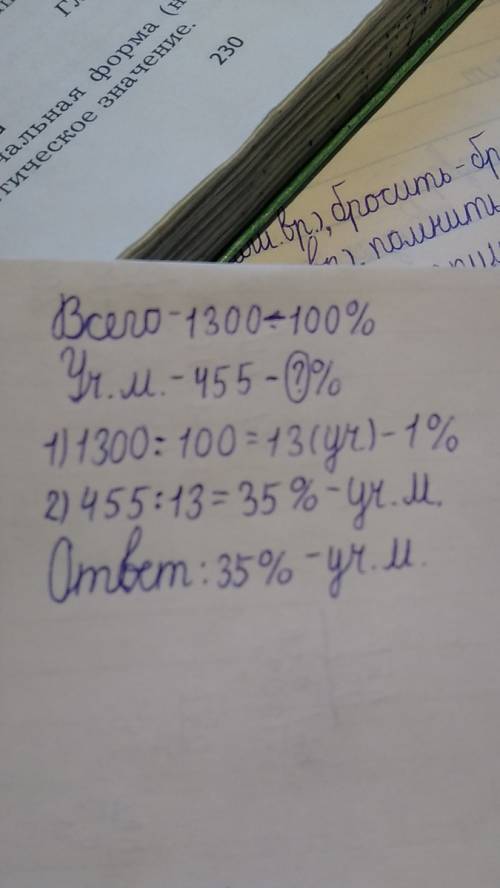 чальная форма (н
тическое значение.
230
вр.), бросить - бр
вр.), помнить
Всего - 1300 - 100%
Уч. м. - 455 - ?%
1) 1300 : 100 = 13 (уч) - 1%
2) 455 : 13 = 35% - уч. м.
Ответ: 35% - уч. м.